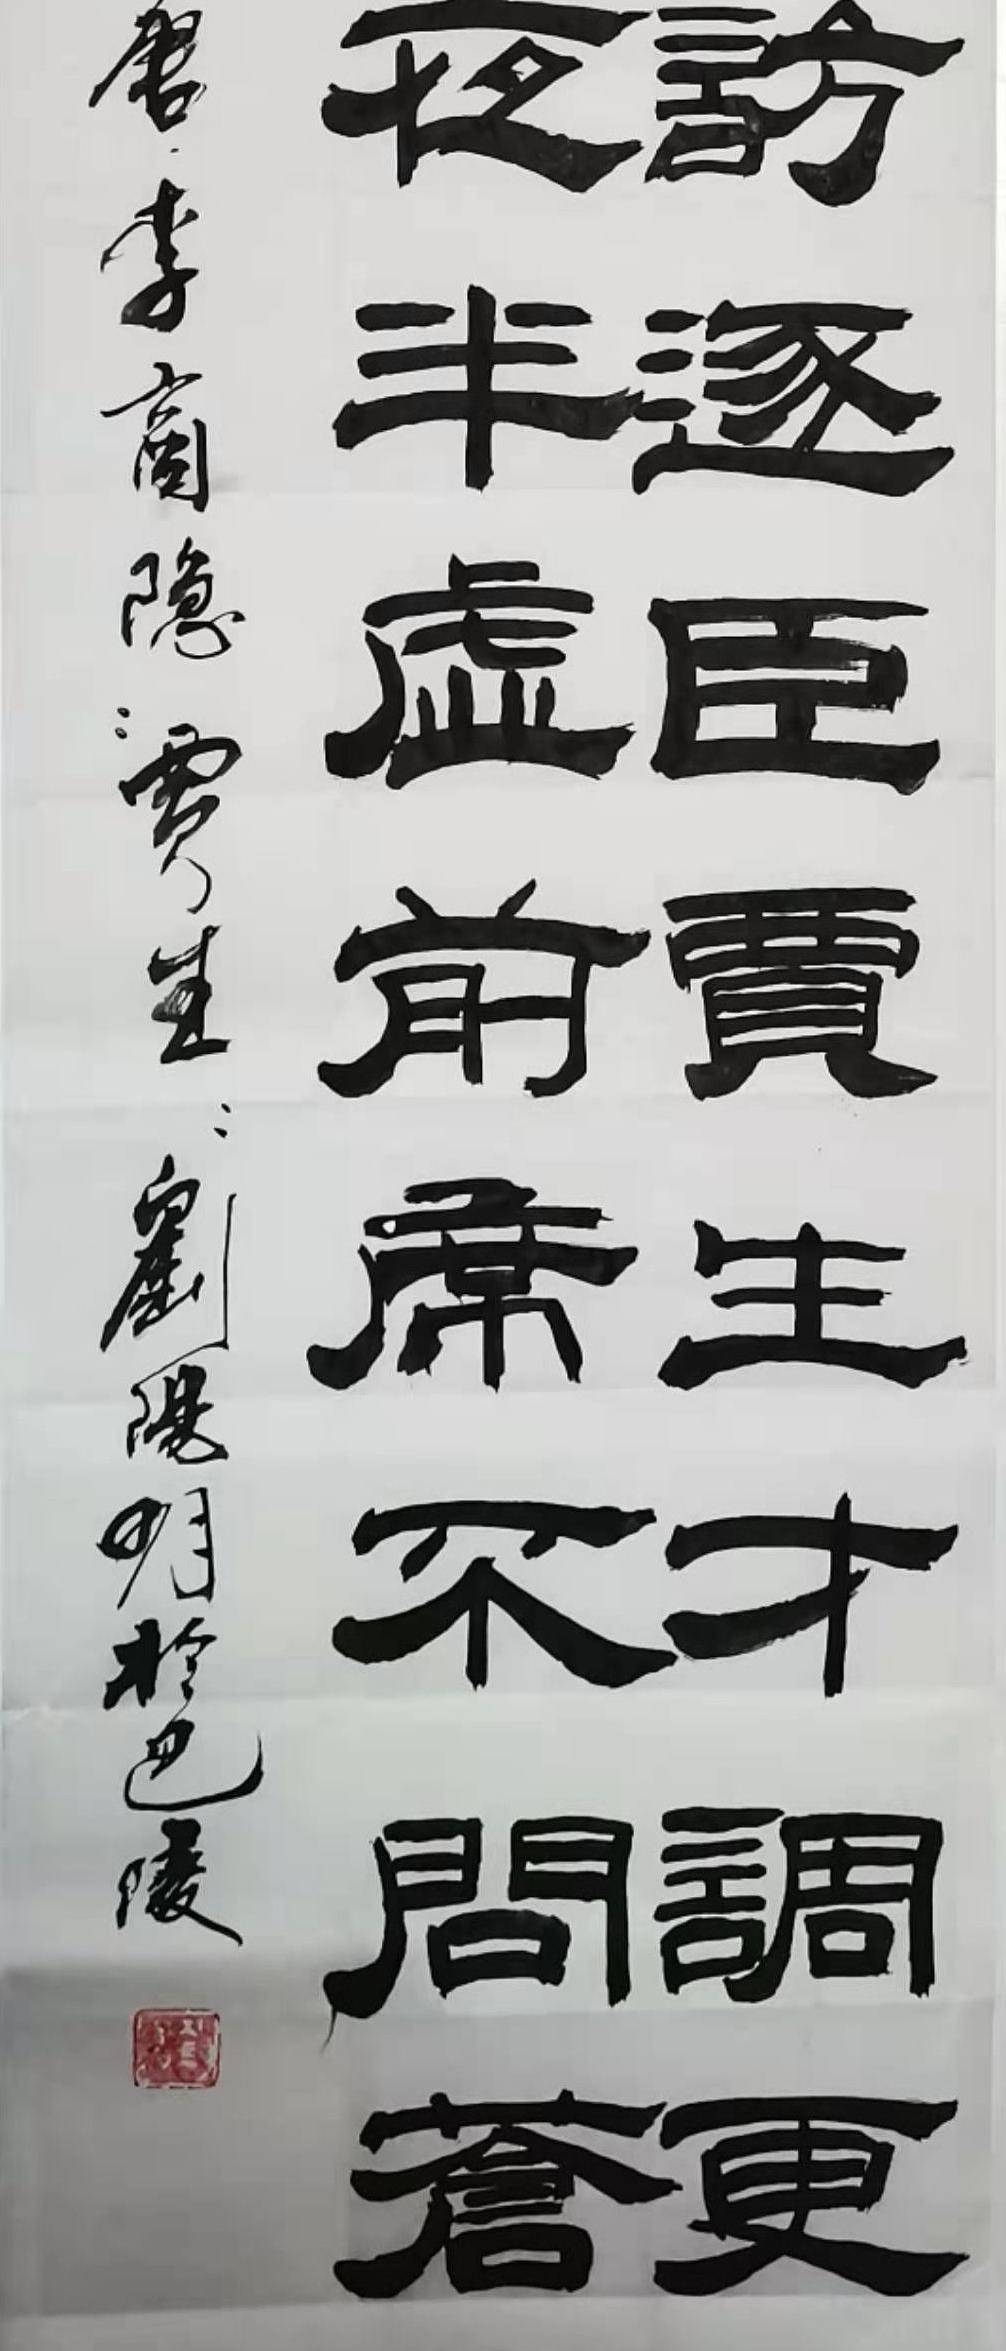 訪逐臣賈生才調更
夜半虚前席不問蒼
唐·李商隐:賈生:劉陽明於巴陵